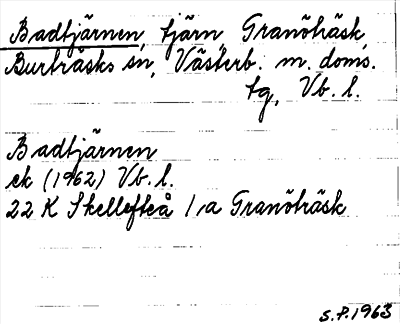 Badtjärnen, tjärn, Granöträsk,
Burträsks sn, Västerb. m. doms.
tg, Vb. l.
Badtjärnen
ek (1962) Vb. l.
22 K Skellefteå 1,a Granöträsk
S.P. 1963